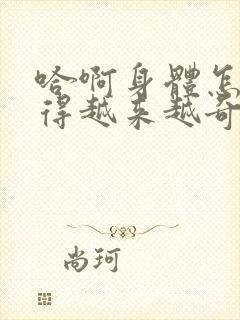 哈啊身體怎
得越来越奇
尚珂